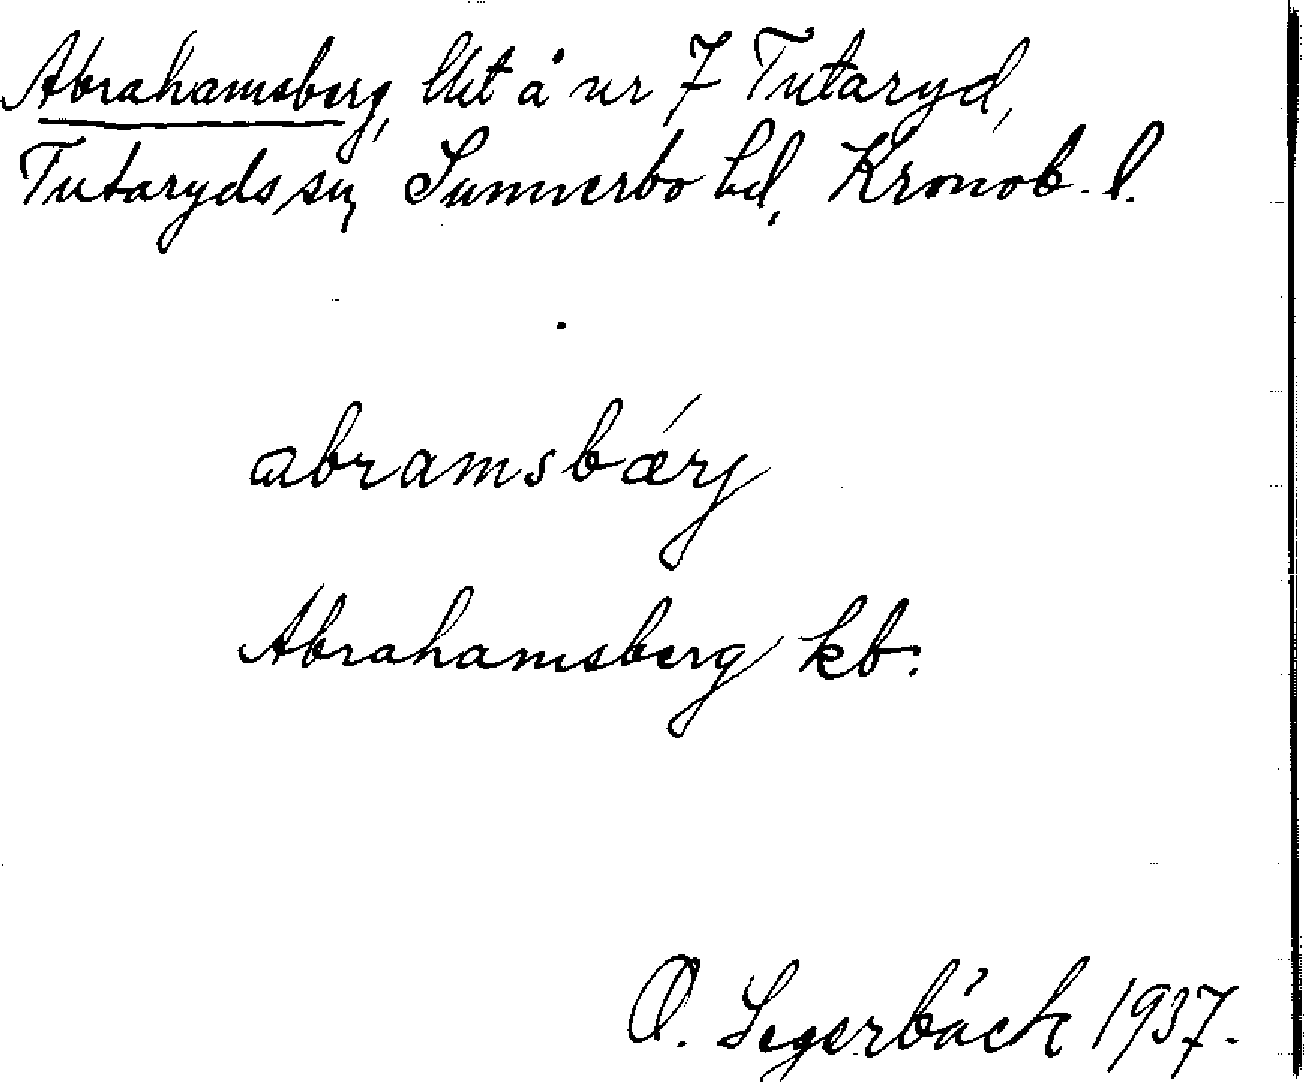 Abrahamsberg, lht å nr 7 Tutaryd,
Tutaryds sn, Sunnerbo hd, Kronob. l.
abramsbærj
Abrahamsberg kb.
O. Segerbäck 1937.